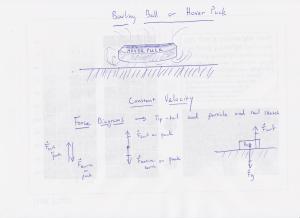 Bowling Ball or Hover Puck
HOVER PUCK
Constant Velocity
Force Diagrams → Tip-tail and particle and real sketch
F surf on puck
F earth on puck
F surf on puck
F earth on puck
F surf
Fg